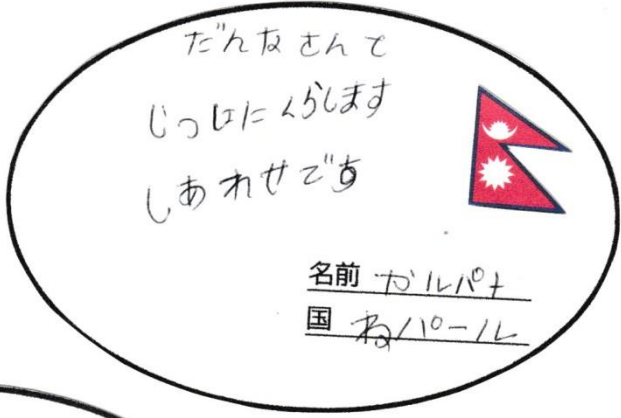 だんなさんと
じっしょにくらします
しあわせです
名前 カルパナ
国 ねパール